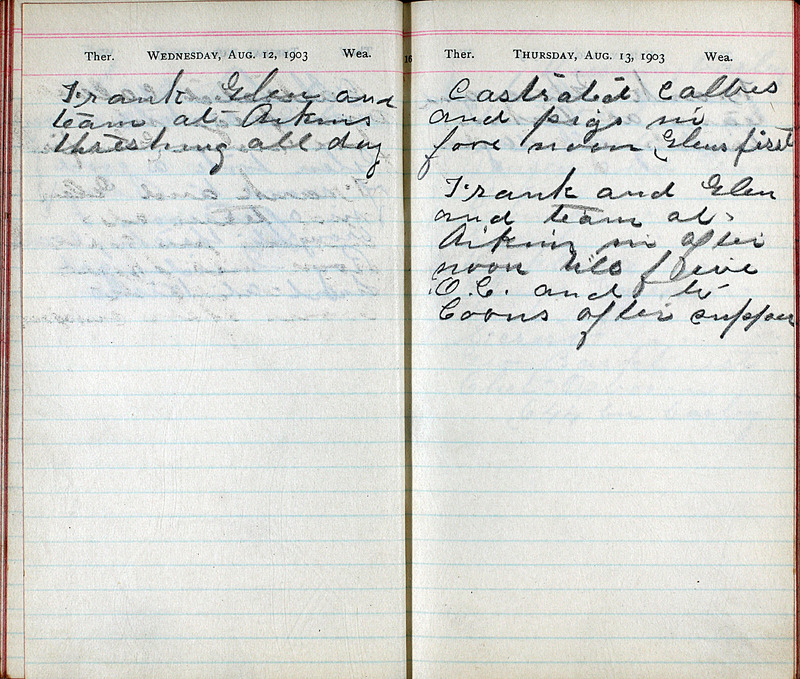 Ther. WEDNESDAY, AUG. 12, 1903 Wea.
Frank Glen and
team at Aikins
threshing all day
16
Ther. THURSDAY, AUG. 13, 1903 Wea.
Castrated Calves
and pigs in
fore noon Glens first
Frank and Glen
and team at
Aikins in after
noon till five
O.C. and to
Coons after supper